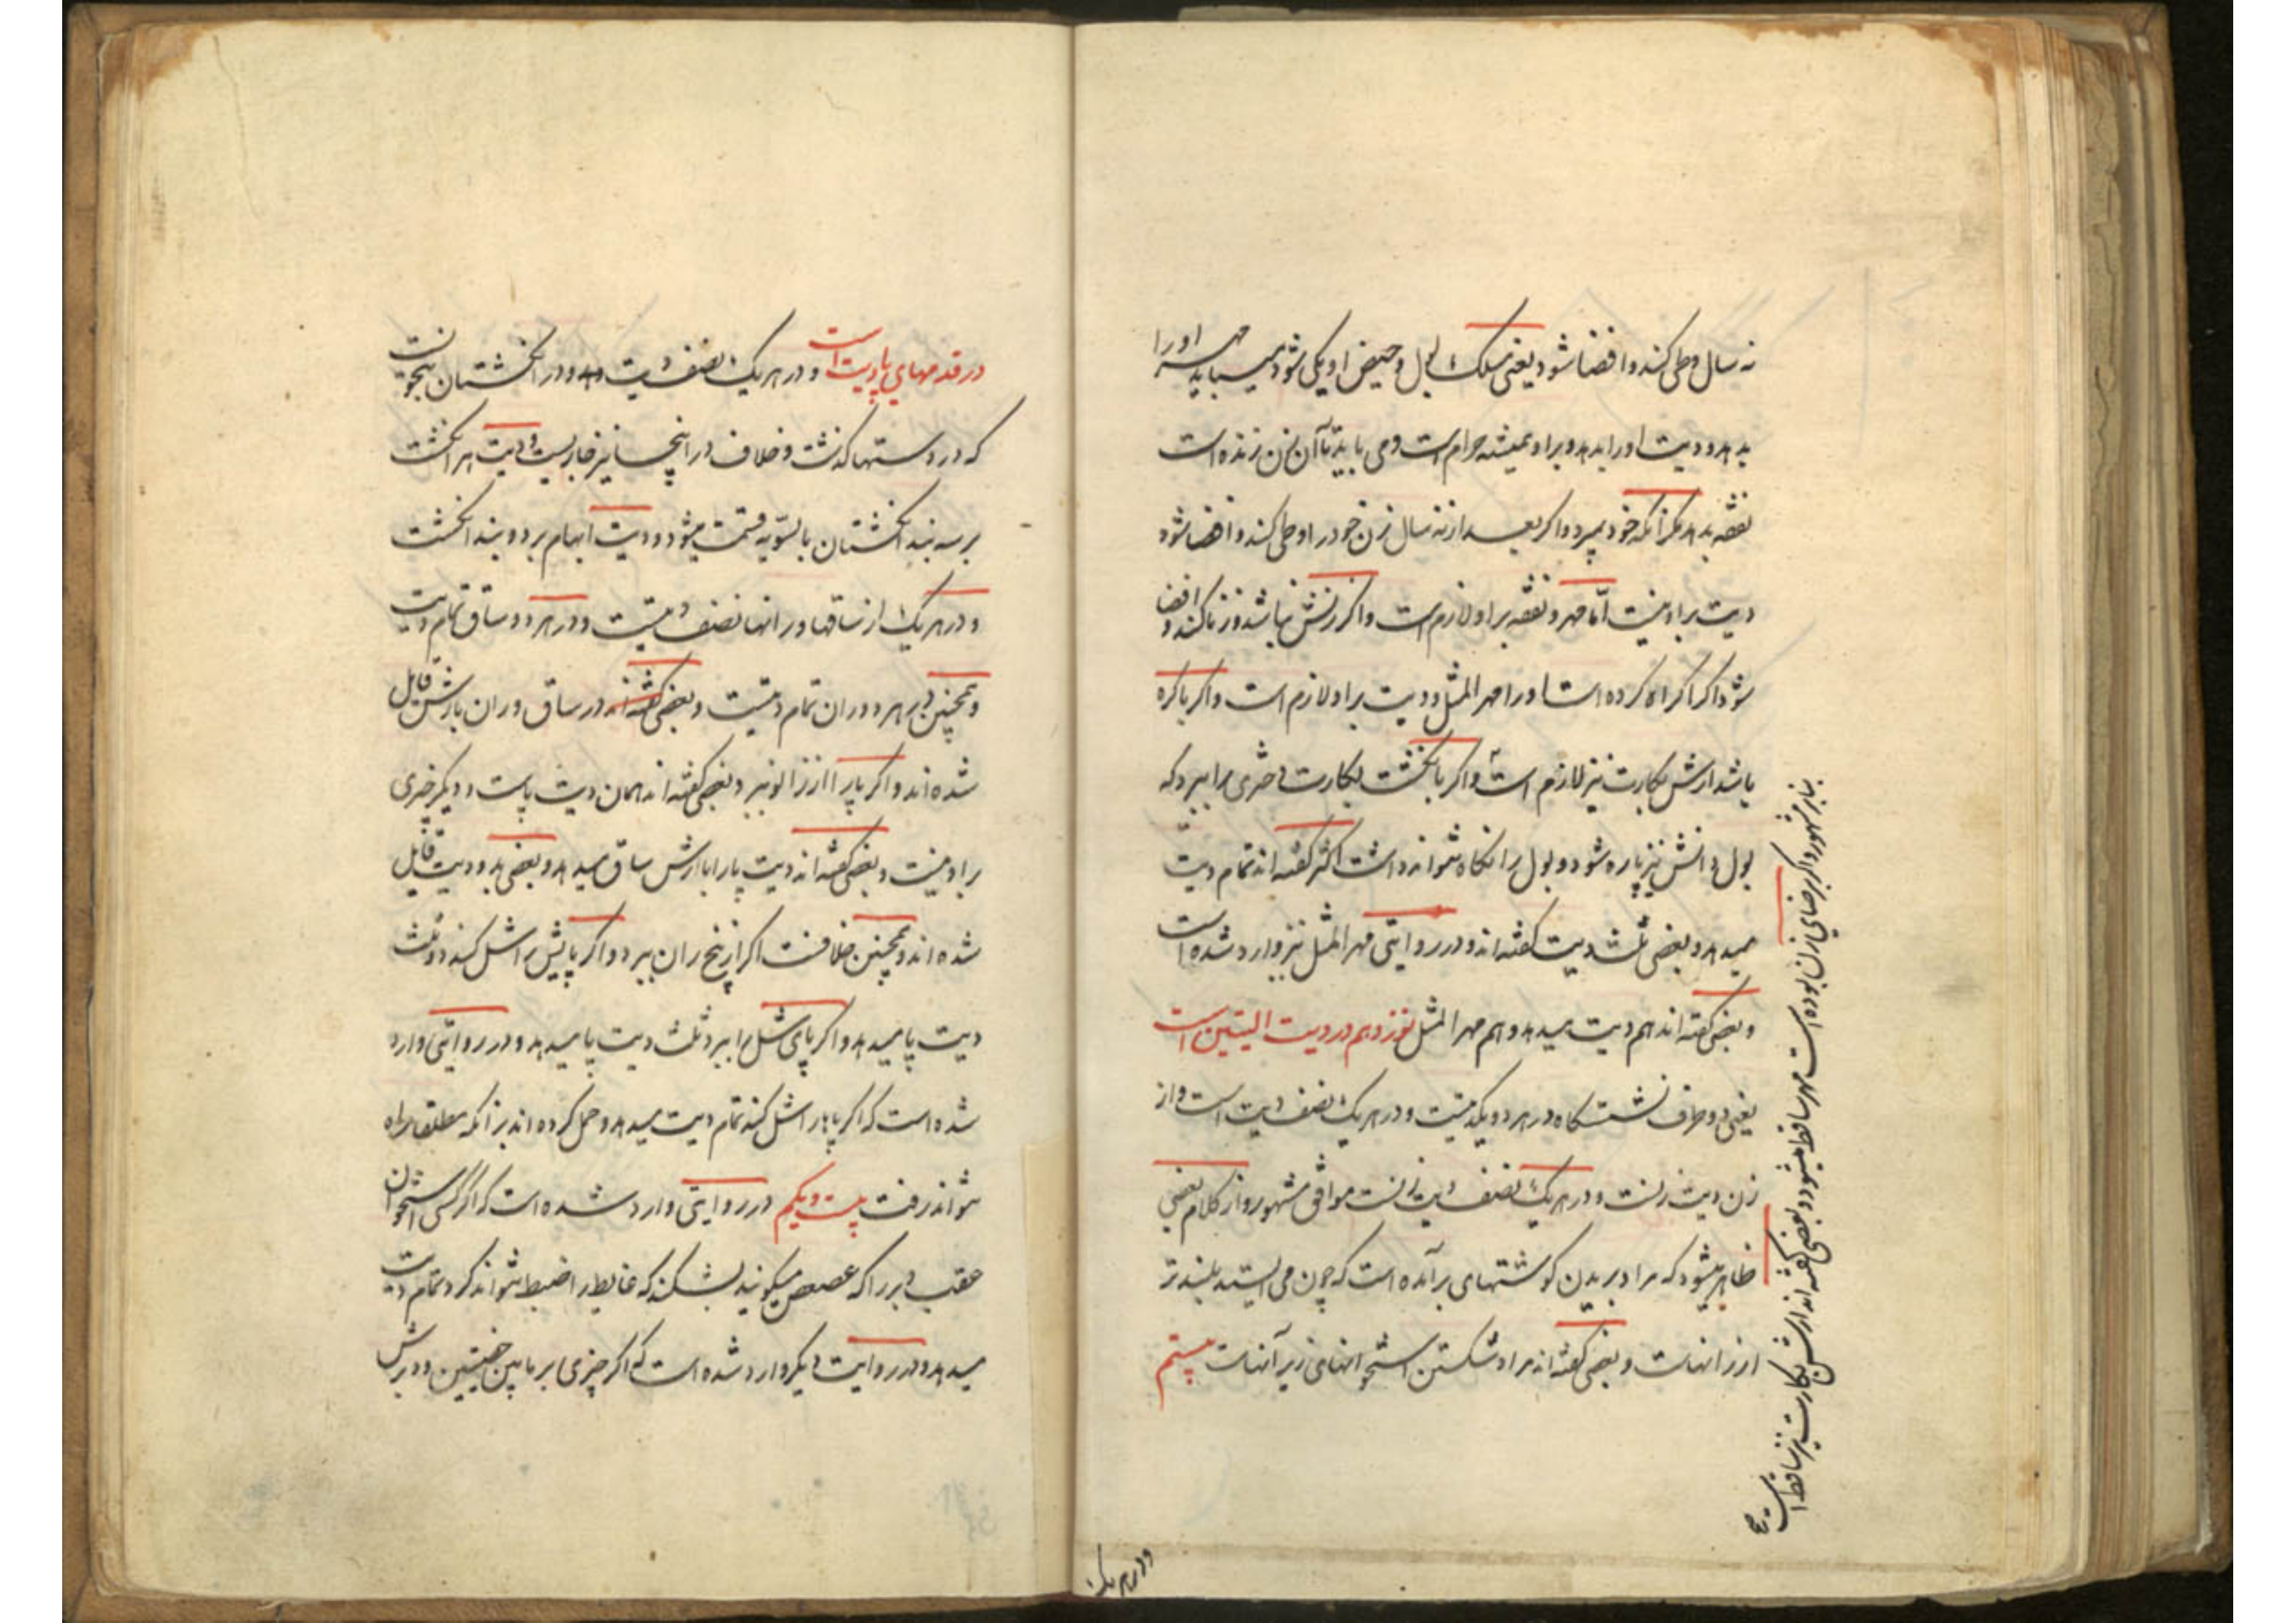 نه سال وطی کند و افضا شود یعنی مسلک بول و حیض او یکی شود میباید مهر او را
بدهد و دیت او را بدهد و بر او همیشه حرام است و می باید تا آن زن زنده است
نفقه بدهد مگر آنکه خود بمیرد و اگر بعد از نه سال زن خود را وطی کند و افضا شود
دیت بر او نیست اما مهر و نفقه بر او لازم است و اگر زنش نباشد و زنا کند و افضا
شود اگر اکراه کرده است او را مهر المثل و دیت بر او لازم است و اگر باکره
باشد ارش بکارت نیز لازم است و اگر بانگشت بکارت دختری را ببرد که
بول دانش نیز پاره شود و بول را نگاه نتواند داشت اکثر گفته اند تمام دیت
میدهد و بعضی ثلث دیت گفته اند و در روایتی مهر المثل نیز وارد شده است
و بعضی گفته اند هم دیت میدهد و هم مهر المثل نوزدهم در دیت الیتین است
یعنی دو طرف نشستگاه در هر دو یکدیتست و در هر یک نصف دیت است و از
زن دیت زنست و در هر یک نصف دیت زنست موافق مشهور و از کلام بعضی
ظاهر میشود که مراد بریدن گوشتهای برآمده است که چون می ایستد بلندتر
از رانهاست و بعضی گفته اند مراد شکستن استخوانهای زیر آنهاست بیستم
بنابر مشهور و اگر برضای زن بوده است مهر ساقط میشود و بعضی گفته اند ارش بکارت نیز ساقط است
در هر یک
در قدمهای پا دیت است و در هر یک نصف دیت و در انگشتان بنحویست
که در دستها گذشت و خلاف در اینجا نیز جاریست و دیت هر انگشت
بر سه بند انگشتان بالسویه قسمت میشود و دیت ابهام بر دو بند انگشت
و در هر یک از ساقها و رانها نصف دیتست و در هر دو ساق تمام دیت
و همچنین در هر دو ران تمام دیتست و بعضی گفته اند در ساق و ران بارش قایل
شده اند و اگر پا را از زانو ببرد بعضی گفته اند همان دیت پاست و دیگر چیزی
بر او نیست و بعضی گفته اند دیت پا را با ارش ساق میدهد و بعضی بدو دیت قایل
شده اند و همچنین خلافست اگر از بیخ ران ببرد و اگر پایش را شل کند دو ثلث
دیت پا میدهد و اگر پای شل را ببرد ثلث دیت پا میدهد و در روایتی وارد
شده است که اگر پا را شل کند تمام دیت میدهد و حمل کرده اند بر آنکه مطلقا راه
نتواند رفت بیست و یکم در روایتی وارد شده است که اگر کسی استخوان
عقب دبر را که عصعص میگویند بشکند که غایط را ضبط نتواند کرد تمام دیت
میدهد و در روایت دیگر وارد شده است که اگر چیزی بر مابین خصیتین و دبرش